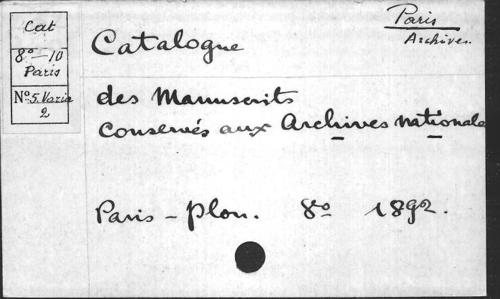 Cat
8º-10
Paris
Nº 5. Varia
2
Paris
Archives.
Catalogue
des Manuscrits
conservés aux Archives nationales
Paris - Plon. 8º 1892.